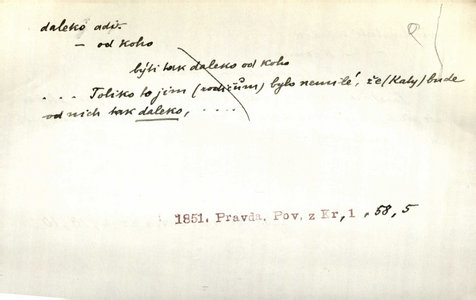 daleko adv.
– od koho
býti tak daleko od koho
. . . . Toliko to jim (rodičům) bylo nemilé, že (Katy) bude
od nich tak daleko, . . . .
1851. Pravda. Pov. z Kr, 1 , 58, 5